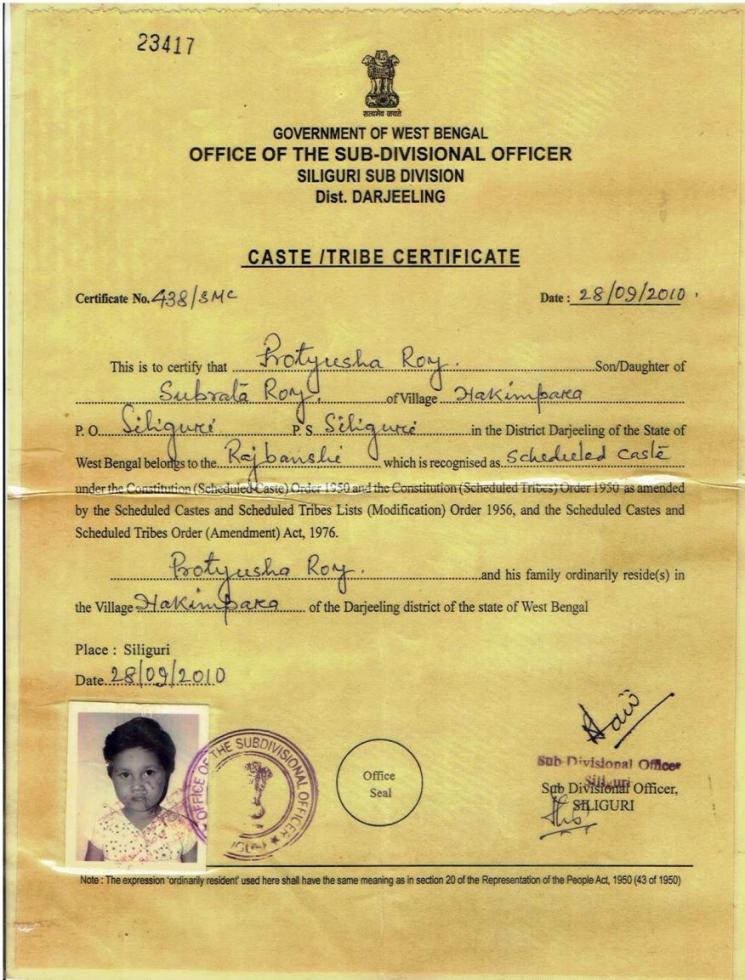 23417
सत्यमेव जयते
GOVERNMENT OF WEST BENGAL
OFFICE OF THE SUB-DIVISIONAL OFFICER
SILIGURI SUB DIVISION
Dist. DARJEELING
CASTE /TRIBE CERTIFICATE
Certificate No. 438/SMC Date : 28/09/2010
This is to certify that Protyusha Roy. Son/Daughter of
Subrata Roy. of Village Hakimpara
P. O. Siliguri P. S. Siliguri in the District Darjeeling of the State of
West Bengal belongs to the Rajbanshi which is recognised as Scheduled Caste
under the Constitution (Scheduled Caste) Order 1950 and the Constitution (Scheduled Tribes) Order 1950 as amended
by the Scheduled Castes and Scheduled Tribes Lists (Modification) Order 1956, and the Scheduled Castes and
Scheduled Tribes Order (Amendment) Act, 1976.
Protyusha Roy. and his family ordinarily reside(s) in
the Village Hakimpara of the Darjeeling district of the state of West Bengal
Place : Siliguri
Date 28/09/2010
OFFICE OF THE SUBDIVISIONAL OFFICER
Office
Seal
Sub-Divisional Officer
Siliguri
Sub Divisional Officer,
SILIGURI
Note : The expression 'ordinarily resident' used here shall have the same meaning as in section 20 of the Representation of the People Act, 1950 (43 of 1950)